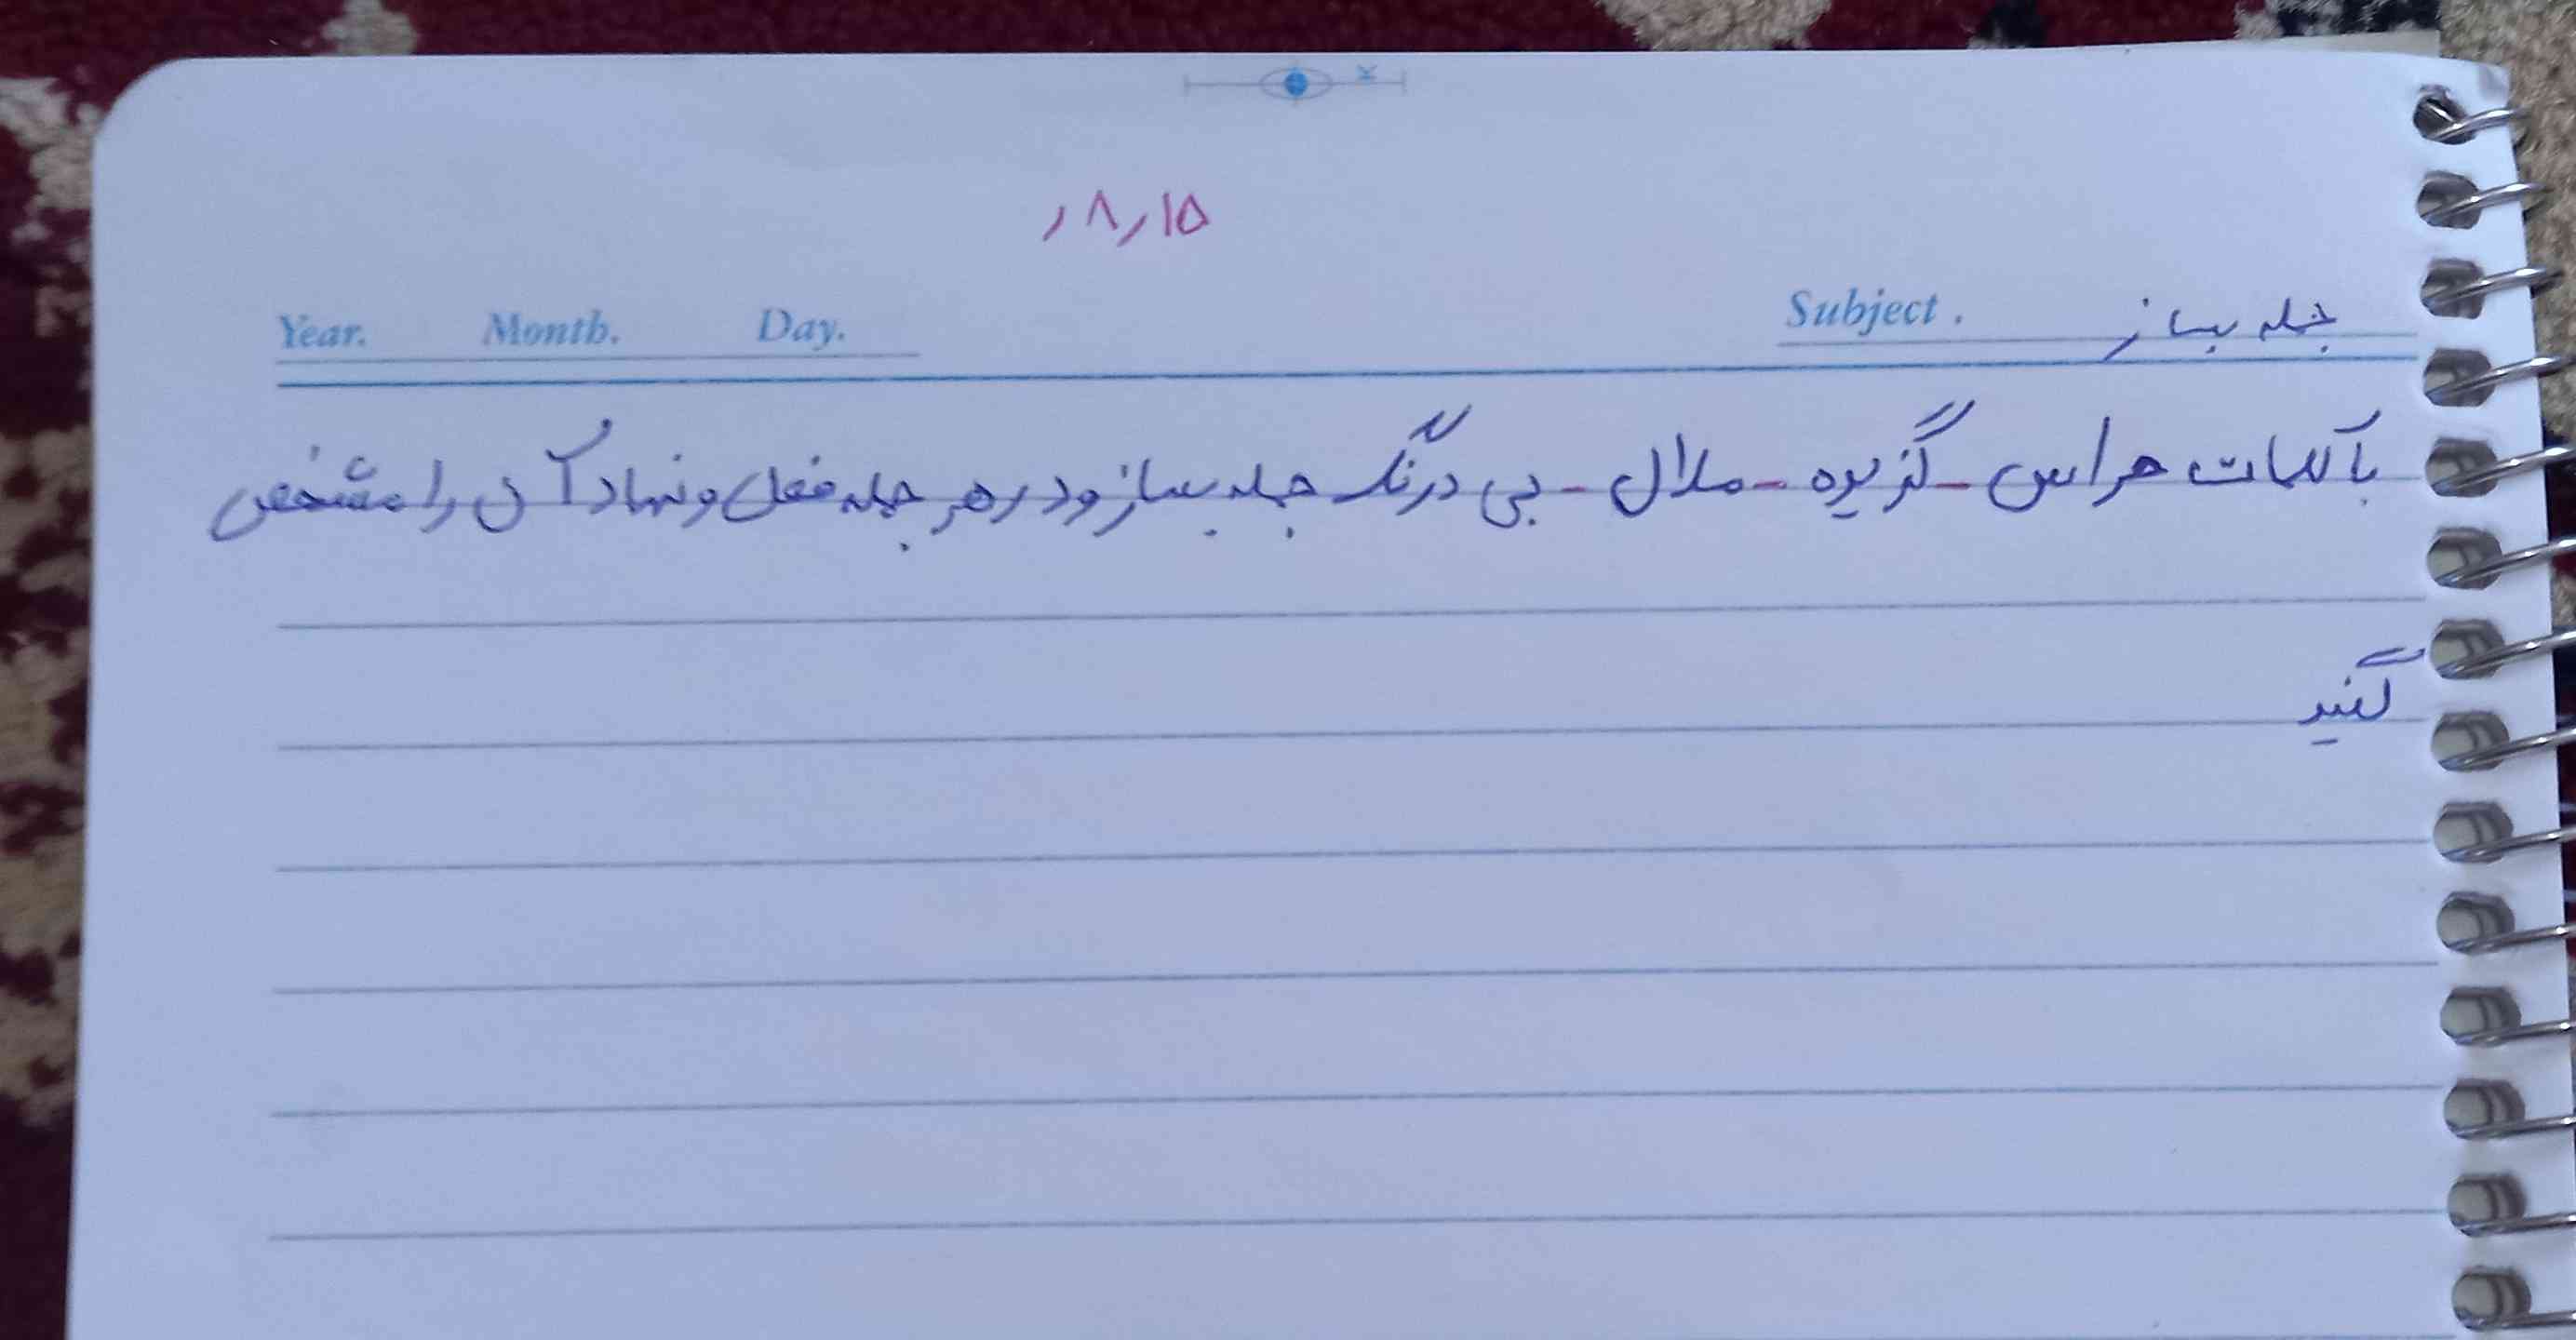 ۸٫۱۵٫
Year. Month. Day. Subject . جمله بساز
با کلمات هراس - گزیوه - ملال - بی درنگ جمله بساز و در هر جمله فعل و نهاد آن را مشخص
کنید